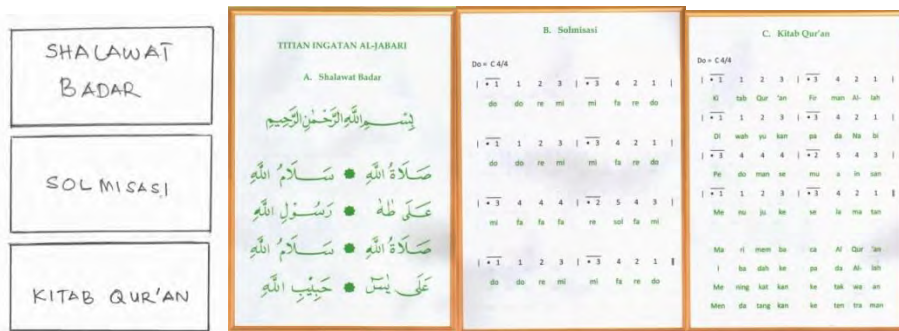 SHALAWAT
BADAR
SOLMISASI
KITAB QUR'AN
TITIAN INGATAN AL-JABARI
A. Shalawat Badar
بِسْــــمِ اللَّهِ الرَّحْمٰنِ الرَّحِيْمِ
صَلَاةُ اللَّهِ ✹ سَلَامُ اللَّهِ
عَلَى طٰهٰ ✹ رَسُوْلِ اللَّهِ
صَلَاةُ اللَّهِ ✹ سَلَامُ اللَّهِ
عَلَى يٰسٓ ✹ حَبِيْبِ اللَّهِ
B. Solmisasi
Do = C 4/4
| • 1 1 2 3 | • 3 4 2 1 |
do do re mi mi fa re do
| • 1 1 2 3 | • 3 4 2 1 |
do do re mi mi fa re do
| • 3 4 4 4 | • 2 5 4 3 |
mi fa fa fa re sol fa mi
| • 1 1 2 3 | • 3 4 2 1 ||
do do re mi mi fa re do
C. Kitab Qur'an
Do = C 4/4
| • 1 1 2 3 | • 3 4 2 1 |
Ki tab Qur 'an Fir man Al- lah
| • 1 1 2 3 | • 3 4 2 1 |
Di wah yu kan pa da Na bi
| • 3 4 4 4 | • 2 5 4 3 |
Pe do man se mu a in san
| • 1 1 2 3 | • 3 4 2 1 ||
Me nu ju ke se la ma tan
Ma ri mem ba ca Al Qur 'an
I ba dah ke pa da Al- lah
Me ning kat kan ke tak wa an
Men da tang kan ke ten tra man